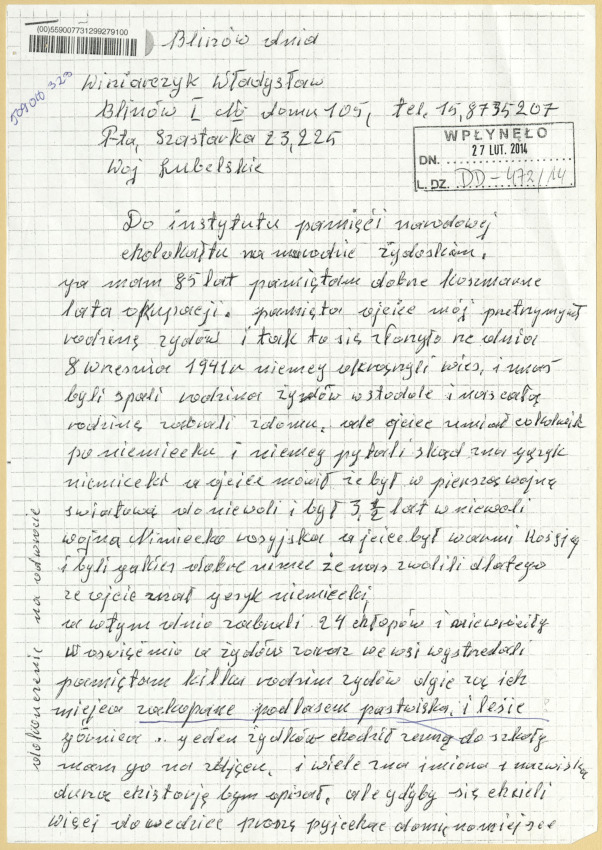 (00)559007731299279100
Blinów dnia
509010 323
Winiarczyk Władysław
Blinów I № domu 105, tel. 15,8735207
P-ta, Szastarka 23,225
Woj Lubelskie
WPŁYNĘŁO
27 LUT. 2014
DN.
L. DZ. DD-472/14
Do instytutu pamięci narodowej
cholokałtu na narodzie żydoskim.
ya mam 85 lat pamiętam dobre koszmarne
lata okupacji. pamięta ojciec mój pretrzymywał
rodzinę zydów i tak to się złorzyło rze dnia
8 wresnia 1941 r niemcy okrąnzyli wieś, i
byli spali rodzina żyndów wstodole i nas całą
rodzinę zabrali zdomu, ale ojciec umiał cokolwik
po niemiecku i niemcy pytali skąd zna yęzyk
niemiecki a ojciec mówił rze był w pierszą wojną
swiatową do niewoli i był 3,½ lat w niewoli
wojna Nimiecko rosyjska a ojciec był warmi Rosyją
i byli yakies dobre nimce że nas zwolili dlatego
ze ojciec znał yesyk niemiecki,
a wtym dniu zabrali 24 chłopów i niewróciły
W oswięcimio a żydów zaraz we wsi wystrzelali
pamiętam kilka rodzim zydów dgie są ich
miejca zakopane podlasem pastwiska, i lesie
górnica .. yeden żydków chodził zemną do szkoły
mam go na zdjęcu, i wiele zna imiona i nazwiska
durzą chistorją bym opisał, ale gdyby się chcieli
więcej dowiedziec proszę pyjechac domię namiejsce
dokonczenie na odwrocie